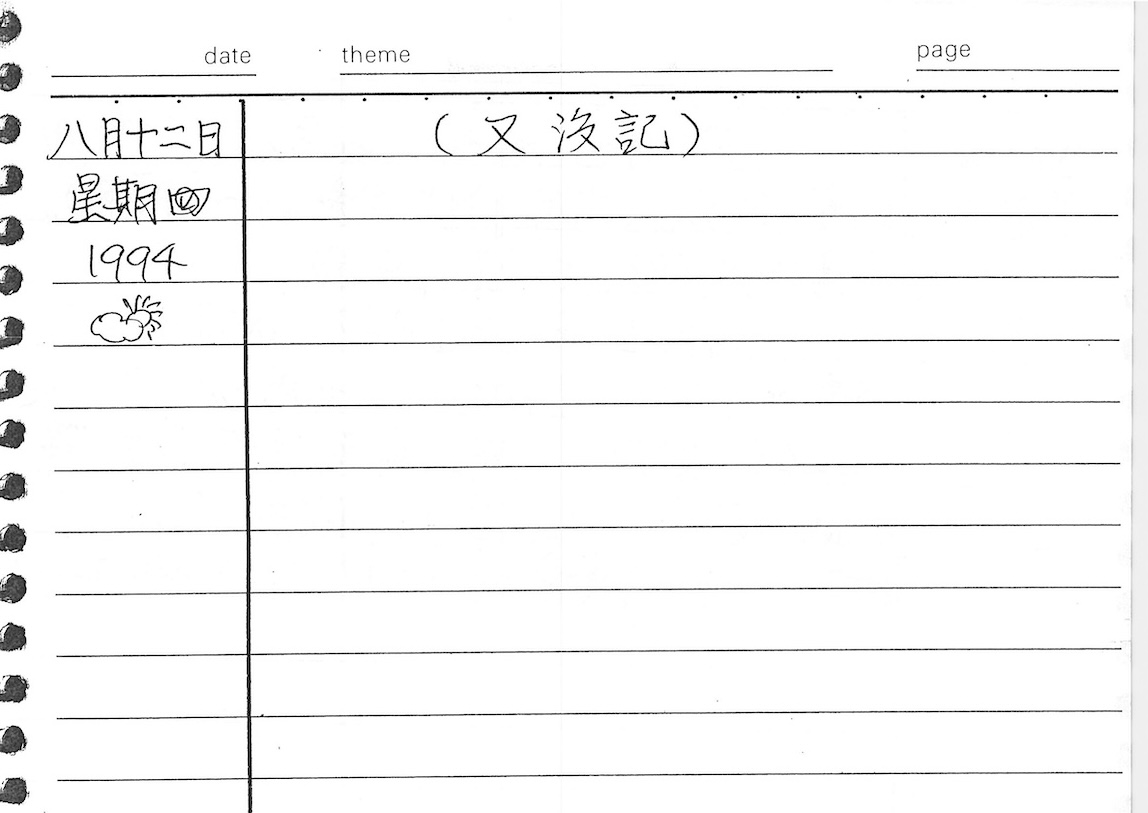 date theme page
八月十二日 (又沒記)
星期四
1994